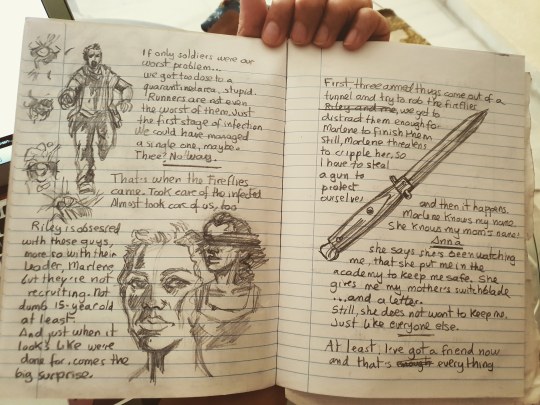 If only soldiers were our
worst problem...
we got too close to a
quarantine area, stupid.
Runners are not even
the worst of them. Just
the first stage of infection
We could have managed
a single one, maybe a
Three? No way...
That's when the Fireflies
came. Took care of the infected
Almost took care of us, too
Riley is obsessed
with those guys,
more so with their
leader, Marlene
but they're not
recruiting. Not
dumb 15-year old
at least.
And just when it
looks like we're
done for, comes the
big surprise.
First, three armed thugs come out of a
tunnel and try to rob the fireflies
Riley and me, we got to
distract them enough for
Marlene to finish them
Still, Marlene threatens
to cripple her, so
I have to steal
a gun to
protect
ourselves
and then it happens.
Marlene knows my name
She knows my mom's name!
Anna
she says she's been watching
me, that she put me in the
academy to keep me safe. She
gives me my mother's switchblade
...and a letter.
Still, she does not want to keep me.
Just like everyone else.
At least, I've got a friend now
and that's enough everything